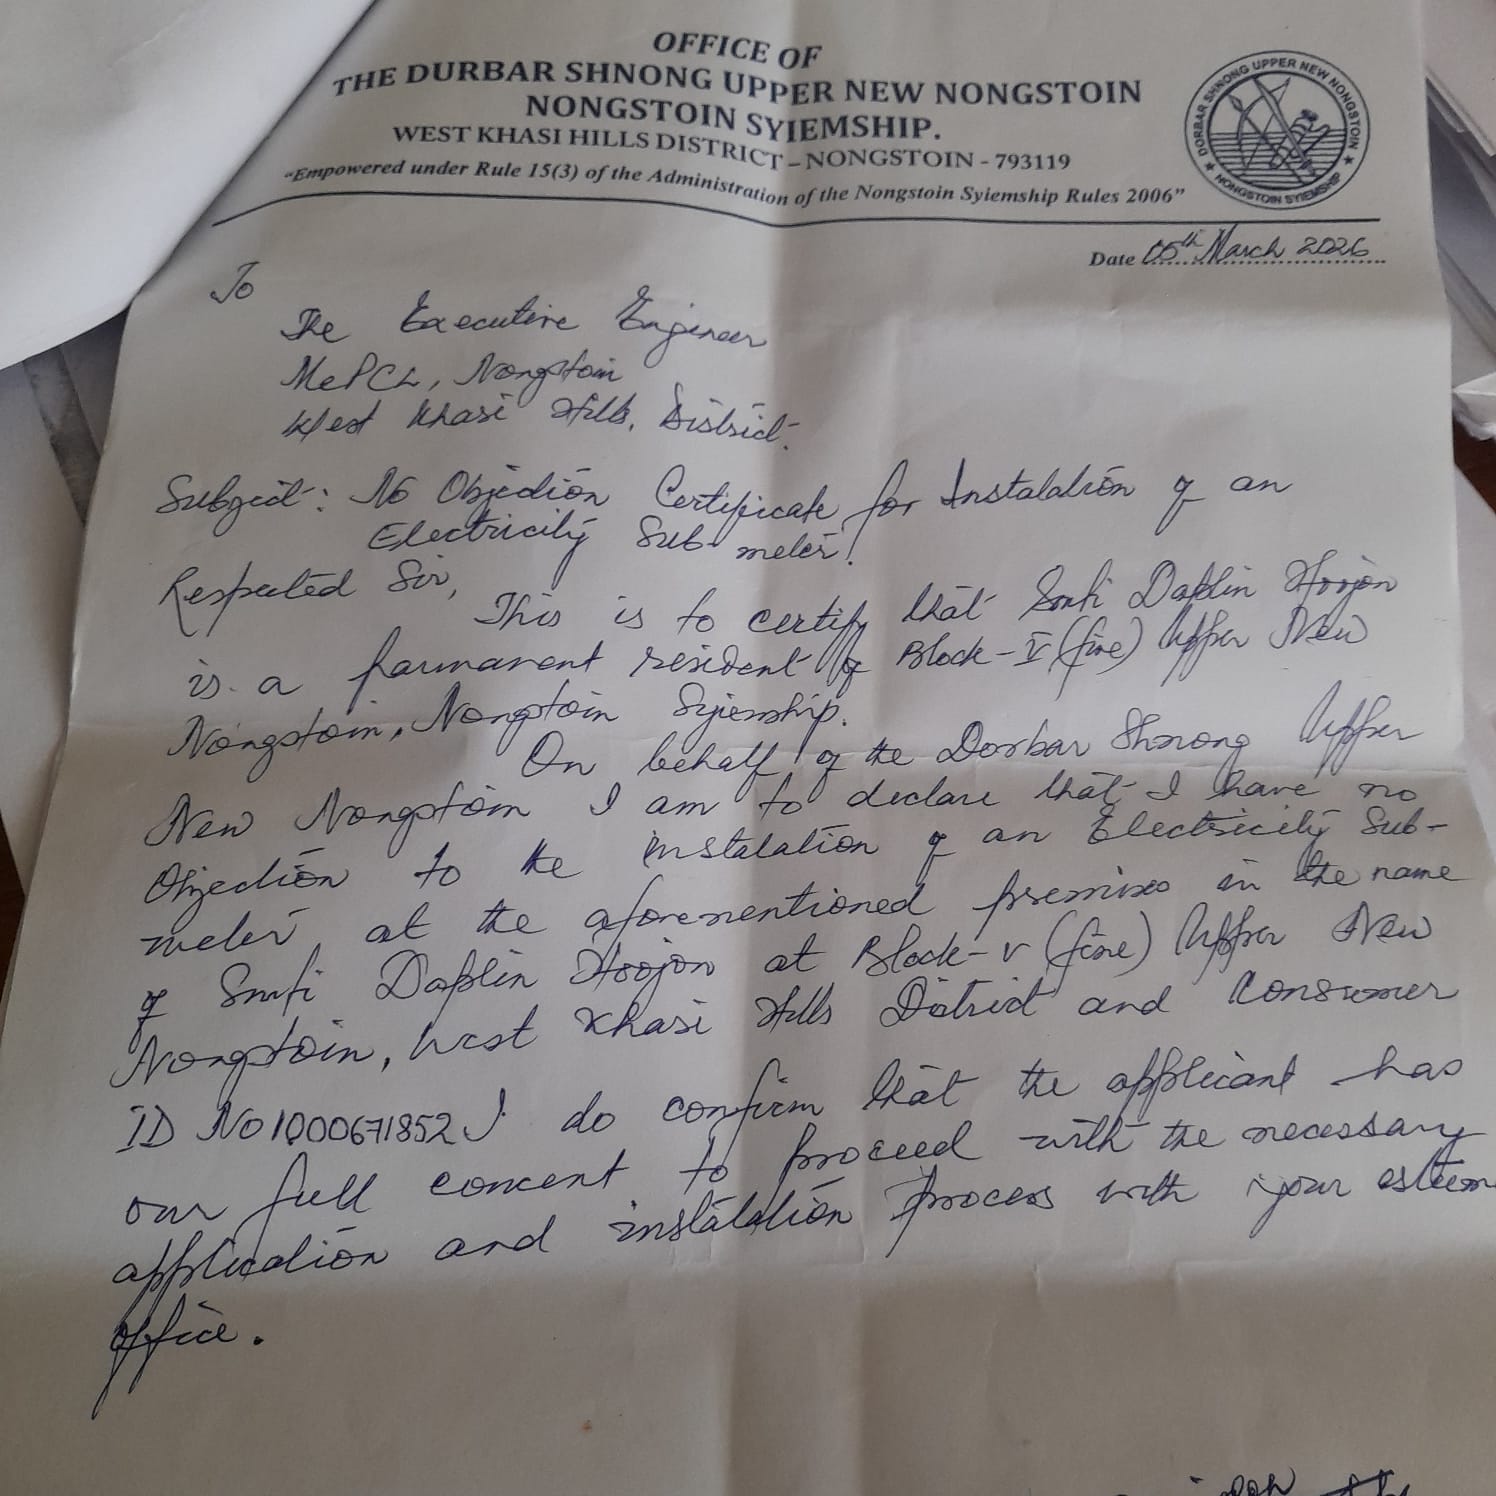 OFFICE OF
THE DURBAR SHNONG UPPER NEW NONGSTOIN
NONGSTOIN SYIEMSHIP.
WEST KHASI HILLS DISTRICT – NONGSTOIN - 793119
"Empowered under Rule 15(3) of the Administration of the Nongstoin Syiemship Rules 2006"
DORBAR SHNONG UPPER NEW NONGSTOIN
★ NONGSTOIN SYIEMSHIP ★
Date 05th March 2026
To
The Executive Engineer
MePCL, Nongstoin
West Khasi Hills, District.
Subject: No Objection Certificate for Instalation of an
Electricity Sub-meter.
Respected Sir,
This is to certify that Smti Daplin
is a parmanent resident of Block-V (five) Upper New
Nongstoin, Nongstoin Syiemship.
On behalf of the Dorbar Shnong Upper
New Nongstoin I am to declare that I have no
Objection to the instalation of an Electricity Sub-
meter at the aforementioned premises in the name
of Smti Daplin at Block-V (five) Upper New
Nongstoin, West Khasi Hills District and Consumer
ID No 1000671852 I do confirm that the applicant has
our full concent to proceed with the necessary
application and instalation process with your esteem
office.